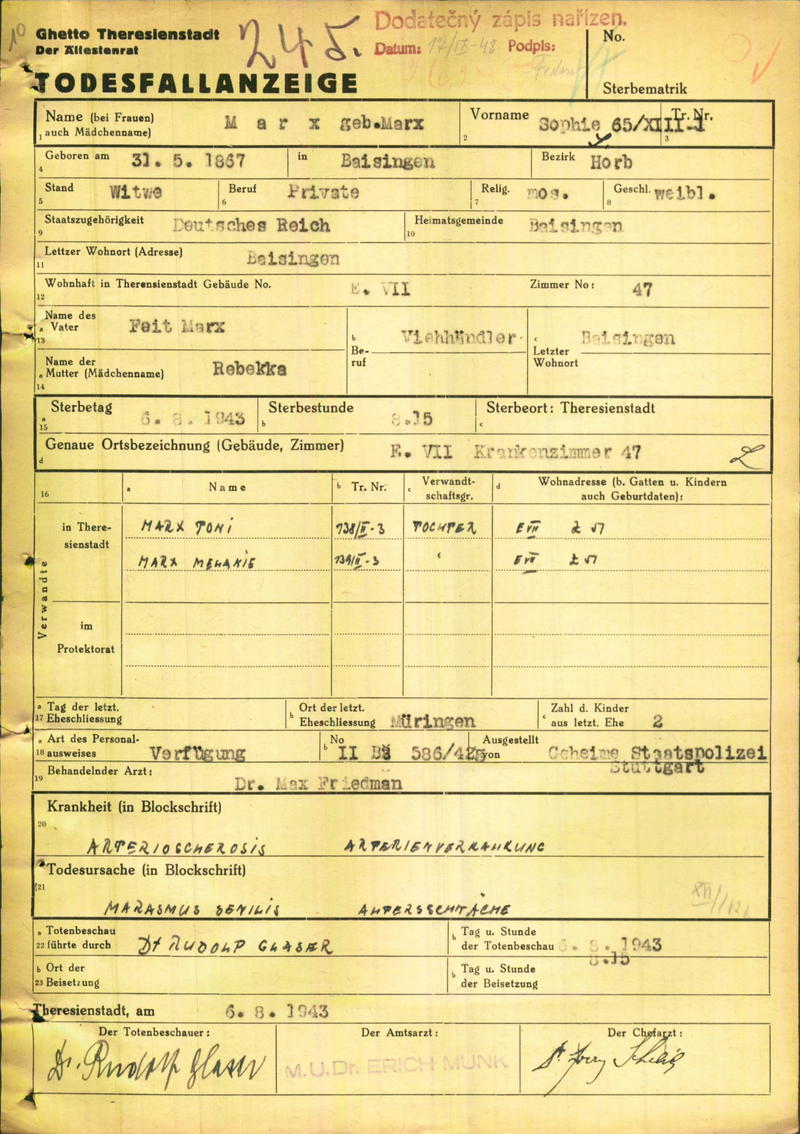 Ghetto Theresienstadt
Der Ältestenrat
245.
Dodatečný zápis nařízen.
Datum: 17/IX-48 Podpis:
No.
Sterbematrik
TODESFALLANZEIGE
Name (bei Frauen) auch Mädchenname) 1 Marx geb.Marx
Vorname 2 Sophie
Tr. Nr. 3 65/XIII-1
4 Geboren am 31. 5. 1867 in Baisingen Bezirk Horb
5 Stand Witwe 6 Beruf Private 7 Relig. mos. 8 Geschl. weibl.
9 Staatszugehörigkeit Deutsches Reich 10 Heimatsgemeinde Baisingen
11 Lettzer Wohnort (Adresse) Baisingen
12 Wohnhaft in Therensienstadt Gebäude No. E. VII Zimmer No: 47
13 a Name des Vater Feit Marx b Beruf Viehhändler c Letzter Wohnort Baisingen
14 a Name der Mutter (Mädchenname) Rebekka
15 a Sterbetag 6. 8. 1943 b Sterbestunde 8.15 c Sterbeort: Theresienstadt
d Genaue Ortsbezeichnung (Gebäude, Zimmer) E. VII Krankenzimmer 47
16 a Name b Tr. Nr. c Verwandtschaftsgr. d Wohnadresse (b. Gatten u. Kindern auch Geburtdaten):
Verwandte
in Theresienstadt MARX TONI 738/XIII-3 TOCHTER E VII
MARX MELANIE 739/XIII-3 " E VII
im Protektorat
17 a Tag der letzt. Eheschliessung b Ort der letzt. Eheschliessung Müringen c Zahl d. Kinder aus letzt. Ehe 2
18 a Art des Personalausweises Verfügung b No II B 586/42 c Ausgestellt von Geheime Staatspolizei
Stuttgart
19 Behandelnder Arzt: Dr. Max Friedman
Krankheit (in Blockschrift)
20 ARTERIOSCHEROSIS ARTERIENVERKALKUNG
Todesursache (in Blockschrift)
21 MARASMUS SENILIS ALTERSSCHWÄCHE
22 a Totenbeschau führte durch Dr RUDOLF GLASER b Tag u. Stunde der Totenbeschau 6. 8. 1943
8.15
23 b Ort der Beisetzung b Tag u. Stunde der Beisetzung
Theresienstadt, am 6. 8. 1943
Der Totenbeschauer: Der Amtsarzt: Der Chefarzt:
Dr. Rudolf Glaser M.U.Dr. ERICH MUNK